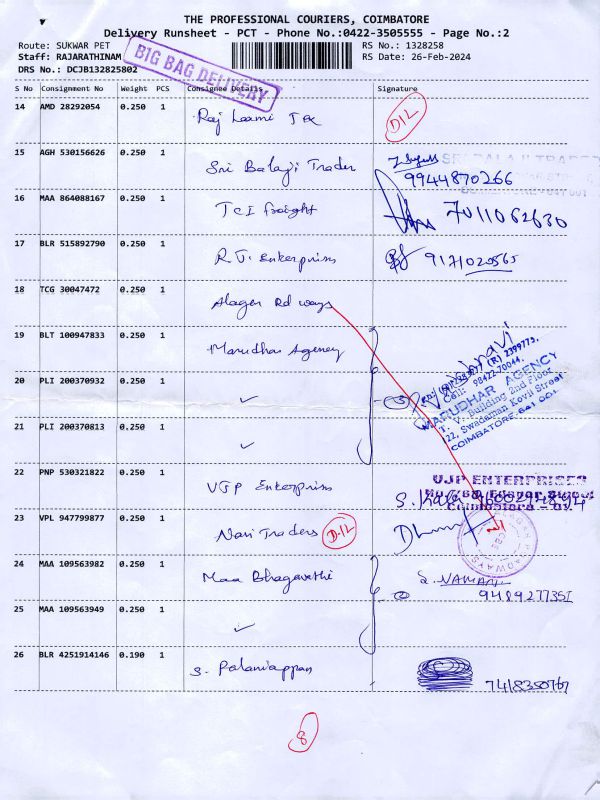 THE PROFESSIONAL COURIERS, COIMBATORE
Delivery Runsheet - PCT - Phone No.:0422-3505555 - Page No.:2
Route: SUKWAR PET
RS No.: 1328258
Staff: RAJARATHINAM
RS Date: 26-Feb-2024
DRS No.: DCJB132825802
BIG BAG DELIVERY
S No Consignment No Weight PCS Consignee Details Signature
14 AMD 28292054 0.250 1 Raj Laxmi Tex D/L
15 AGH 530156626 0.250 1 Sri Balaji Trader
SRI BALAJI TRADERS
9944870266
16 MAA 864088167 0.250 1 TCI freight 7011062630
17 BLR 515892790 0.250 1 R.J. Enterprises 9171020565
18 TCG 30047472 0.250 1 Alagar Rd ways
19 BLT 100947833 0.250 1 Marudhar Agency
20 PLI 200370932 0.250 1 ✓ (3)
MARUDHAR AGENCY
T. V. Building 2nd Floor
122, Swadaman Kovil Street
COIMBATORE-641 001
Cell: 98422-70044
21 PLI 200370813 0.250 1 ✓
22 PNP 530321822 0.250 1 VJP Enterprises
VJP ENTERPRISES
Coimbatore
23 VPL 947799877 0.250 1 Navi Traders D/L
24 MAA 109563982 0.250 1 Maa Bhagavathi
9489277351
25 MAA 109563949 0.250 1 ✓
26 BLR 4251914146 0.190 1 S. Palaniappan
7418350767
8